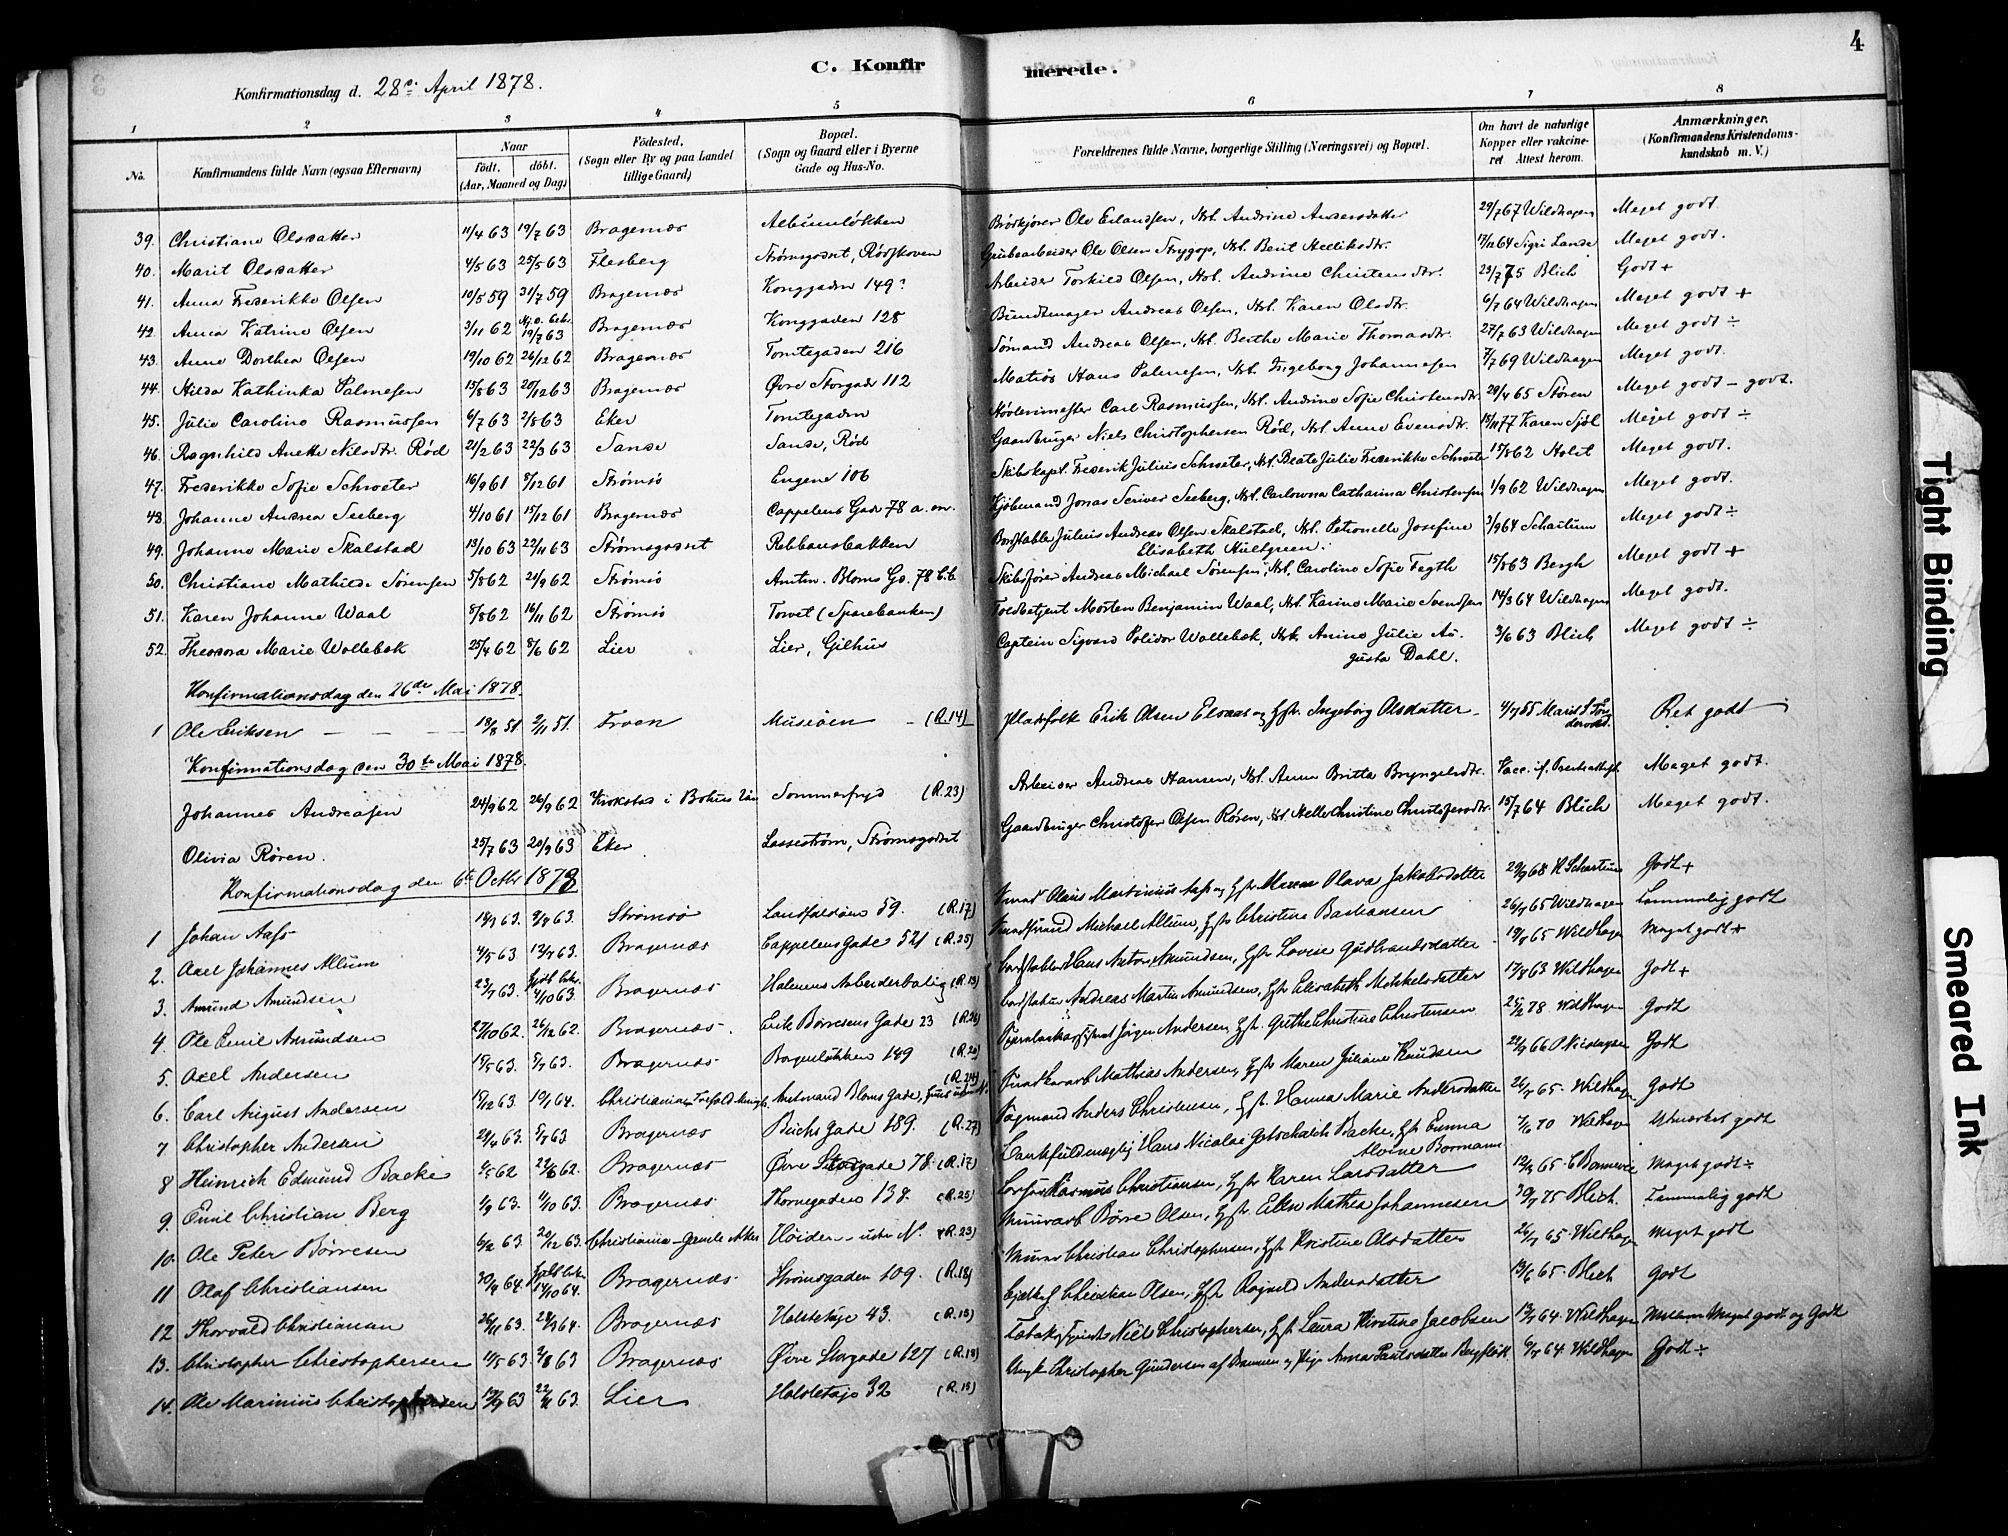 4
C. Konfirmerede.
Konfirmationsdag d. 28de April 1878.
1 2 3 4 5 6 7 8
No. Konfirmandens fulde Navn (ogsaa Efternavn) Naar födt. döbt. (Aar, Maaned og Dag) Födested. (Sogn eller By og paa Landet tillige Gaard) Bopæl. (Sogn og Gaard eller i Byerne Gade og Hus-No. Forældrenes fulde Navne, borgerlige Stilling (Næringsvei) og Bopæl. Om havt de naturlige Kopper eller vaccineret Attest herom. Anmærkninger, (Konfirmandens Kristendomskundskab m. V.)
39. Christiane Olsdatter 11/4 63 19/7 63 Bragernæs Albumløkken Brødkjører Ole Erlandsen, Hst. Andrine Andersdatter 29/7 67 Wildhagen Meget godt.
40. Marit Olsdatter 4/5 63 25/5 63 Flesberg Strømsgodset, Rødskoven Grubearbeider Ole Olsen Strygop, Hst. Berit Helliksdtr. 17/12 64 Sigri Lande Meget godt.
41. Anna Frederikke Olsen 10/5 59 31/7 59 Bragernæs Konggaden 149 Arbeider Torkild Olsen, Hst. Andrine Christensdtr. 23/7 75 Blich Godt +
42. Anna Katrine Olsen 3/11 62 19/7 63 Bragernæs Konggaden 128 Bundtmager Andreas Olsen, Hst. Karen Olsdtr. 6/7 64 Wildhagen Meget godt +
43. Anne Dorthea Olsen 19/10 62 26/12 62 Bragernæs Tomtegaden 216 Sømand Andreas Olsen, Hst. Berthe Marie Thomasdtr. 27/7 63 Wildhagen Meget godt ÷
44. Hilda Kathinka Palmesen 15/8 63 20/12 63 Bragernæs Øvre Storgade 112 Matros Hans Palmesen, Hst. Ingeborg Johannesen 7/7 69 Wildhagen Meget godt.
45. Julie Caroline Rasmussen 6/7 63 2/8 63 Eker Tomtegaden Høvlerimester Carl Rasmussen, Hst. Andrine Sofie Christensdtr. 29/4 65 Støren Meget godt - godt.
46. Ragnhild Anette Nilsdtr. Rød 21/2 63 22/3 63 Sande Sande, Rød Gaardbruger Niels Christophersen Rød, Hst. Anne Evensdtr. 15/11 77 Karen Sjøl Meget godt ÷
47. Frederikke Sofie Schroeter 16/9 61 8/12 61 Strømsø Engene 106 Skibskapt. Frederik Julius Schroeter, Hst. Beate Julie Frederikke Schroeter 15/8 62 Holst Meget godt.
48. Johanne Andrea Seeberg 4/10 61 15/12 61 Bragernæs Cappelens Gade 78 Kjøbmand Jonas Scriver Seeberg, Hst. Carlowna Catharina Christensen 1/9 62 Wildhagen Meget godt.
49. Johanne Marie Skalstad 13/10 63 22/11 63 Strømsgodset Rebbansbakken Bordstabler Julius Andreas Olsen Skalstad, Hst. Petronelle Josefine Elisabeth Hultgreen. 3/9 64 Schartum Meget godt ÷
50. Christiane Mathilde Sørensen 5/8 62 21/9 62 Strømsø Amtm. Bloms Gd. 78 Skibsfører Andreas Michael Sørensen, Hst. Caroline Sofie Fegth 15/8 63 Bergh Meget godt +
51. Karen Johanne Waal 8/8 62 16/11 62 Strømsø Torvet (Sparebanken) Toldbetjent Morten Benjamin Waal, Hst. Karine Marie Svendsen 14/3 64 Wildhagen Meget godt.
52. Theodora Marie Wollebæk 25/4 62 8/6 62 Lier Lier, Gilhus Captein Sigvard Polidor Wollebæk, Hst. Anine Julie Augusta Dahl. 3/6 63 Blich Meget godt ÷
Konfirmationsdag den 26de Mai 1878.
1 Ole Eriksen 18/8 51 2/11 51. Froen Museøen (R.14) pladsfolk Erik Olsen og Hst. Ingeborg Olsdatter 4/7 55 Ret godt
Konfirmationsdag den 30te Mai 1878.
Johannes Andreasen 24/9 62 26/9 62 Krokstad i Bohus Län Sommerfryd (R.23) Arbeider Andreas Hansen, Hst. Anna Britta Bryngelsdtr. Vacc. if. Præsteattest Meget godt.
Olivia Røren. 25/7 63 20/9 63 Eker Lassestrøm, Strømsgodset Gaardbruger Christofer Olsen Røren, Hst. Helle Christine Christofersdtr. 15/7 64 Blich Meget godt.
Konfirmationsdag den 6te Octbr 1878
1 Johan Aas 18/7 63. 9/8 63. Strømsø Landfaldøen 59. (R.17) Olaus Martinius Aas og Hst. Maren Olava Jakobsdatter 29/9 68 H Schartum Godt +
2. Axel Johannes Allum 4/5 63 12/7 63. Bragernæs Cappelens Gade 521 (R.25) Michael Allum, Hst. Christine Bastiansen 26/7 65 Wildhagen Temmelig godt
3. Amund Amundsen 23/7 63. 4/10 63. Bragernæs Holmens Arbeiderbolig (R.13) Bordstabler Hans Anton Amundsen, Hst. Lovise Gudbrandsdatter 19/7 65 Wildhagen Meget godt +
4. Ole Emil Amundsen 27/10 62. 26/12 62. Bragernæs. Erik Børresens Gade 23 (R.26) Andreas Martin Amundsen, Hst. Elisabeth Mikkelsdatter 17/8 63 Wildhagen Godt +
5. Axel Andersen 15/5 63. 5/7 63. Bragernæs Bogenløkken 149 (R.20) Jørgen Andersen, Hst. Grethe Christine Christensen 25/2 78 Wildhagen Godt
6. Carl August Andersen 15/12 63 10/1 64. Christiania Amtmand Bloms Gade, (R.24) Mathias Andersen, Hst. Maren Juliane Knudsen 24/9 66 Godt
7 Christopher Andersen 24/4 63. 5/7 63 Bragernæs Buchs Gade 189. (R.27) Anders Christensen, Hst. Hanna Marie Andersdatter 26/7 65. Wildhagen Godt
8 Heinrich Edmund Backe 2/5 62 22/6 62. Bragernæs Øvre Storgade 78. (R.17) Hans Nicolai Gotschalch Backe, Hst Emma Alvine Bormann 7/6 70 Wildhagen Udmærket godt
9. Emil Christian Berg 1/9 63. 11/10 63 Bragernæs. Thornegaden 138. (R.25) Rasmus Christiansen, Hst. Karen Larsdatter 12/9 65. Meget godt ÷
10. Ole Peter Børresen 6/12 63 20/12 63. Christiania - Gamle Aker Høiden (R.23) Murarb Børre Olsen, Hst. Ellen Mathea Johannesen 30/7 75 Blich. Temmelig godt
11 Olaf Christiansen 30/9 64. 14/10 64. Bragernæs. Strømsgaden 109. (R.18) Murer Christian Christophersen, Hst. Kristine Olsdatter 26/7 65. Wildhagen Meget godt
12 Thorvald Christiansen 26/11 63. 28/3 64. Bragernæs Holstetøje 43. (R.13) Christian Olsen, Hst. Ragnild Andersdatter 13/6 65. Blich Godt
13. Christopher Christophersen 11/5 63 2/8 63 Bragernæs Øvre Storgade 127 (R.13) Niels Christophersen, Hst. Laura Kirstine Jacobsen 13/7 64. Wildhagen Mellem Meget godt og Godt
14. Ole Marinius Christophersen 13/9 63 22/11 63. Lier Holstetøje 32 (R.13) Christopher Gundersen af Drammen og Pige Anna Paulsdatter 6/7 64 Wildhagen Godt ÷
Tight Binding
Smeared Ink